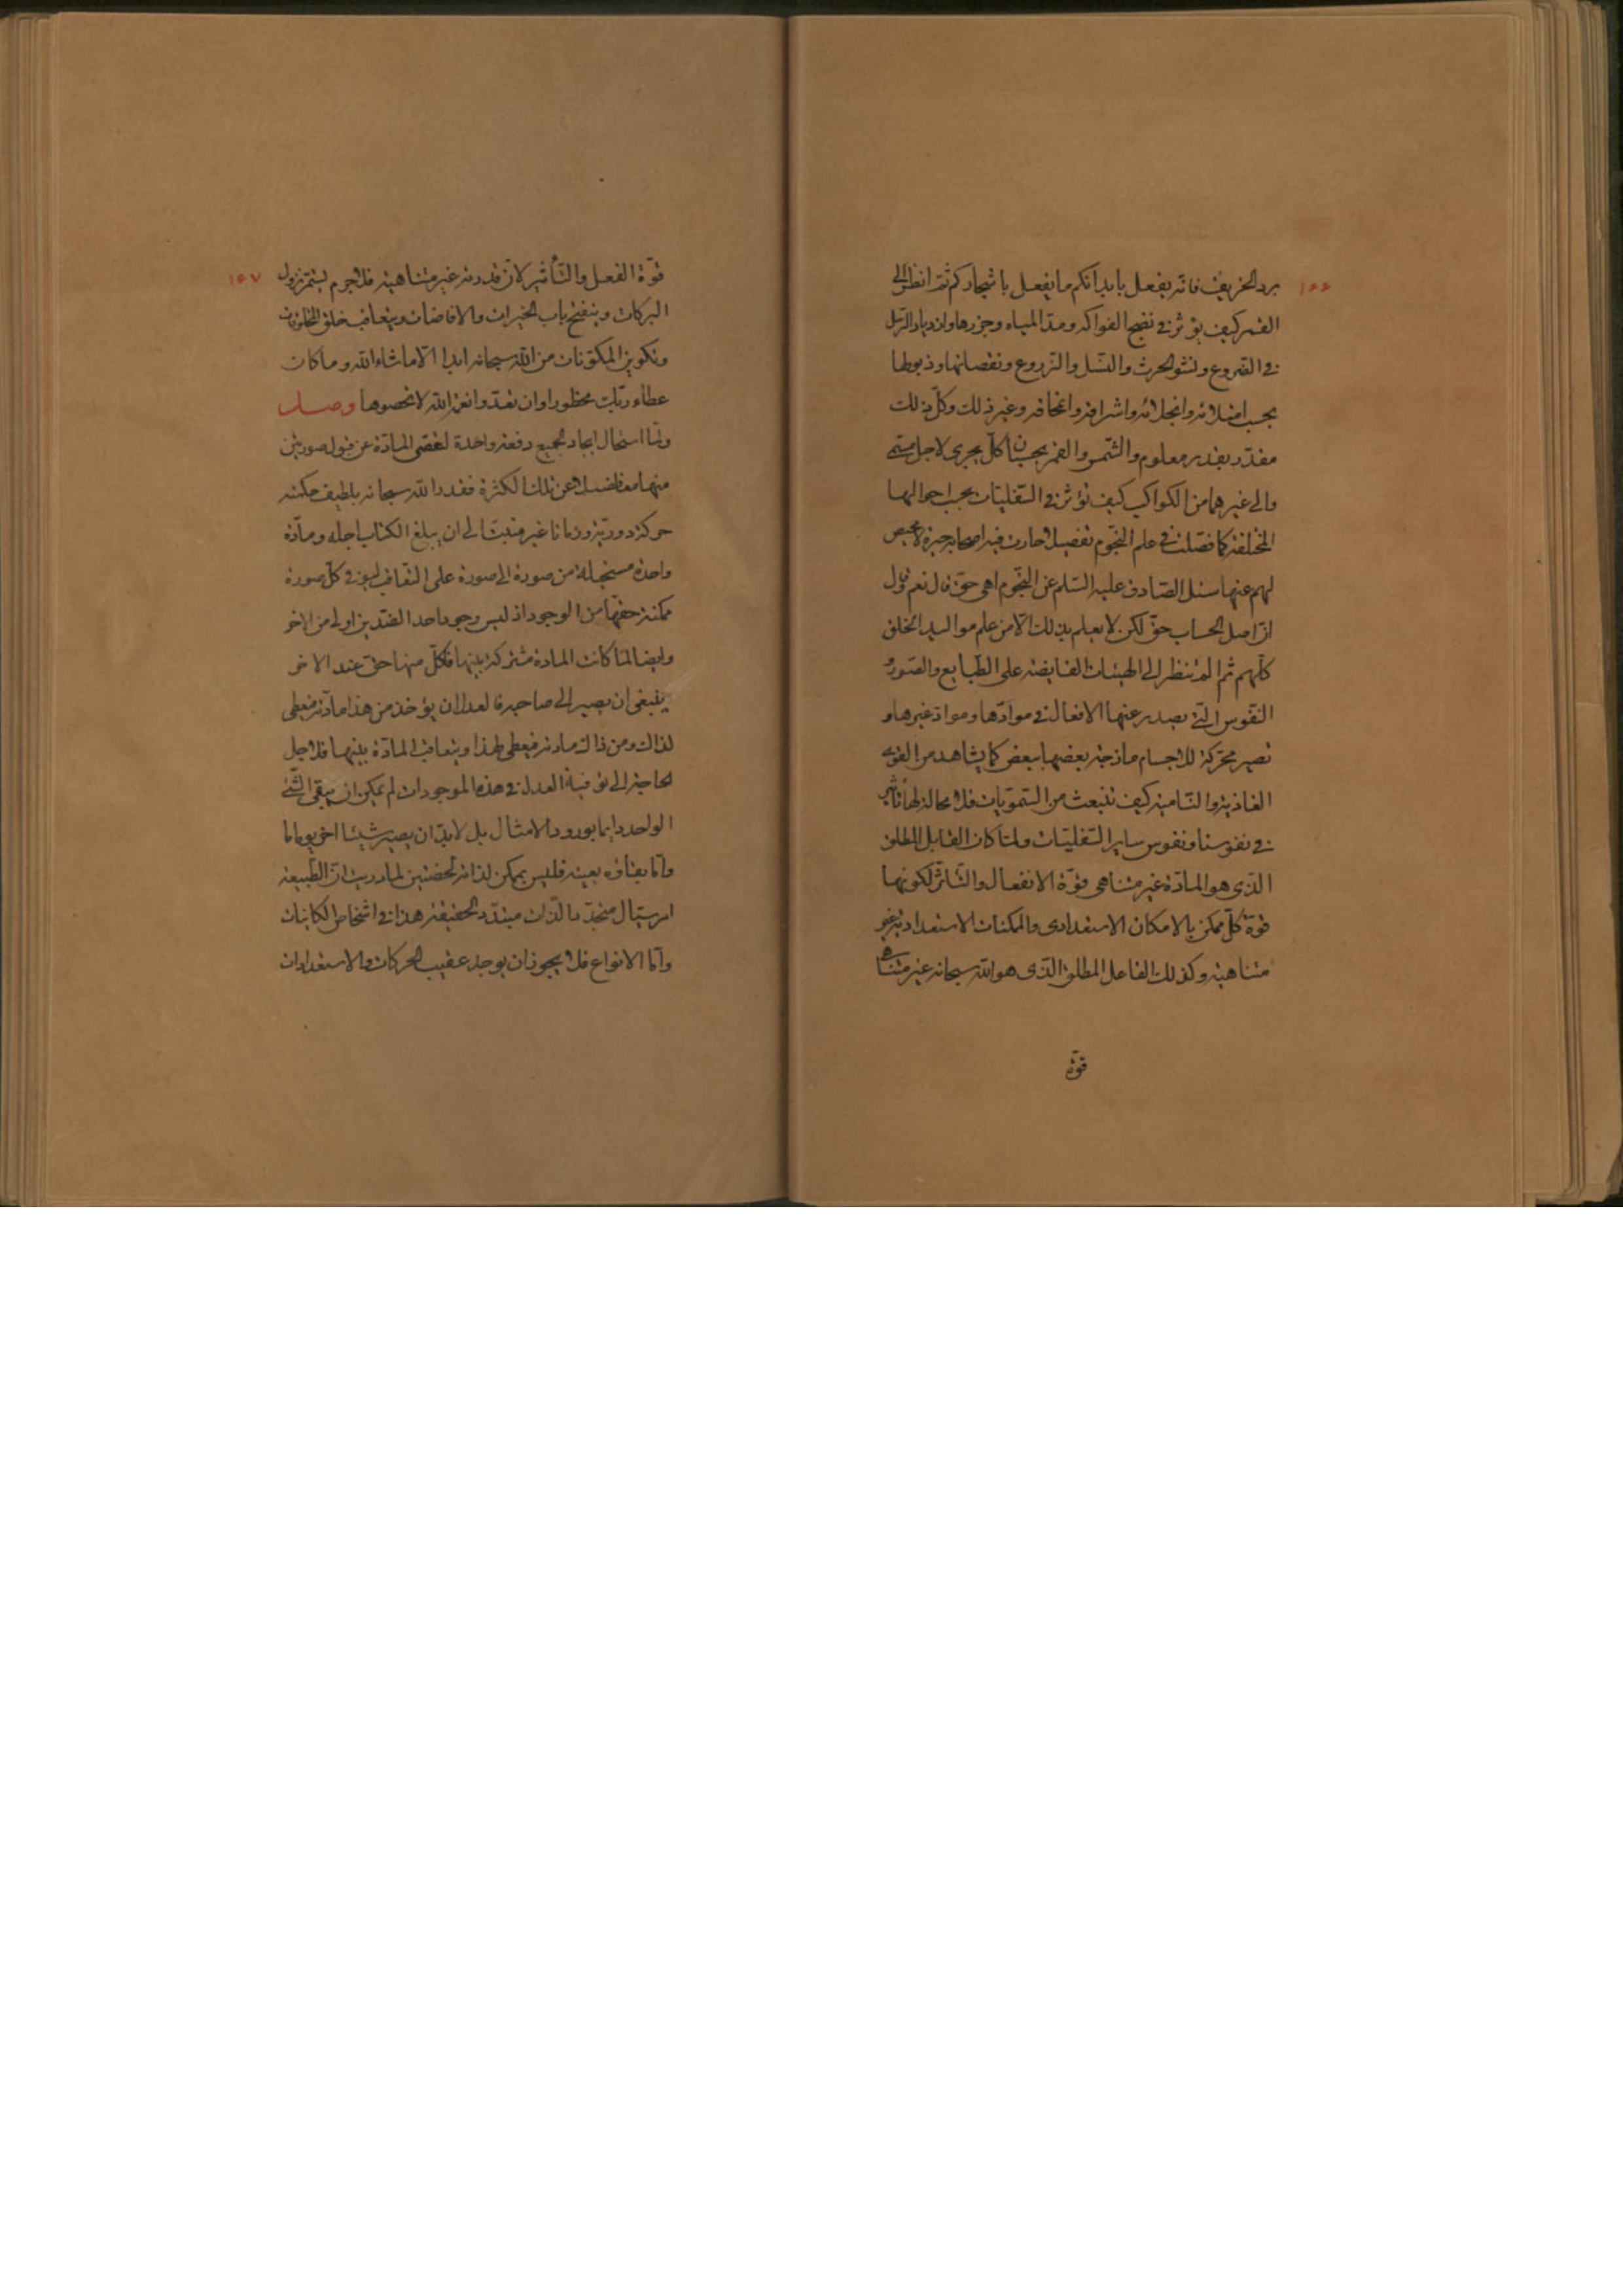 ١٦٦
برد الخريف فانه يفعل بابدانكم ما يفعل باشجاركم ثم انظر الى
القمر كيف يؤثر فى نضج الفواكه ومدّ المياه وجزرها وازدياد
فى الضروع ونشو الحرث والنسل والزروع ونقصانها وذبولها
بحسب امتلائه وانجلائه واشراقه وانخافه وغير ذلك وكلّ ذلك
مقدّر بقدر معلوم والشّمس والقمر بحسبان كلّ يجرى لاجل مسمى
والى غيرهما من الكواكب كيف تؤثر فى السّفليّات بحسب احوالها
المختلفة كما فصّلت فى علم النّجوم تفصيلا حارت فيه اصحابه حيرة لا محيص
لهم عنها سئل الصّادق عليه السّلم عن النّجوم اهى حقّ قال نعم
انّ اصل الحساب حقّ لكن لا يعلم ذلك الّا من علم مواليد الخلق
كلّهم ثم الم تنظر الى الهيئات الفايضة على الطّبايع والصّور و
النّفوس الّتى يصدر عنها الافعال فى موادّها ومواد غيرها و
تصير محرّكة للاجسام مازجة بعضها ببعض كما يشاهد من القوى
الغاذية والنّامية كيف تنبعث من السّمويّات فلا محالة لها تاثير
فى نفوسنا ونفوس ساير السّفليّات ولمّا كان القابل المطلق
الّذى هو المادّة غير متناهى قوّة الانفعال والتّاثر لكونها
قوة كلّ ممكن بالامكان الاستعدادى والممكنات الاستعدادية غير
متناهية وكذلك الفاعل المطلق الّذى هو الله سبحانه غير متناه
قوّة
١٦٧
قوّة الفعل والتّأثير لانّ قدرته غير متناهية فلا جرم يستمر نزول
البركات وينفتح باب الخيرات والافاضات ويتعاقب خلق المخلوقات
وتكوين المكوّنات من الله سبحانه ابدا الّا ما شاء الله وما كان
عطاء ربّك محظورا وان تعدّوا نعمة الله لا تحصوها وصل
ولمّا استحال ايجاد الجميع دفعة واحدة لنقص المادّة عن قبول صورتين
منها معا فضلا عن تلك الكثرة فقدر الله سبحانه بلطيف حكمته
حركة دورية وزمانا غير منبت الى ان يبلغ الكتاب اجله ومادّة
واحدة مستحيلة من صورة الى صورة على التّعاقب ليوفى كلّ صورة
ممكنة حقّها من الوجود اذ ليس وجود احد الضّدين اولى من الاخر
وايضا لمّا كانت المادة مشتركة بينها فلكلّ منها حقّ عند الاخر
ينبغى ان يصير الى صاحبه فالعدل ان يؤخذ من هذا مادّته فيعطى
لذاك ومن ذاك مادته فيعطى لهذا ويتعاقب المادّة بينها فلاجل
الحاجة الى توفية العدل فى هذه الموجودات لم يمكن ان يبقى الشّئ
الواحد دايما بورود الامثال بل لا بدّ ان يصير شيئا اخر يوما ما
وامّا بقاؤه بعينه فليس بممكن لذاته لحظتين لما دريت انّ الطّبيعة
امر سيّال متجدّد بالذّات متبدّد الحقيقة هذا فى اشخاص الكاينات
وامّا الانواع فلا يجوز ان يوجد عقيب الحركات والاستعدادات